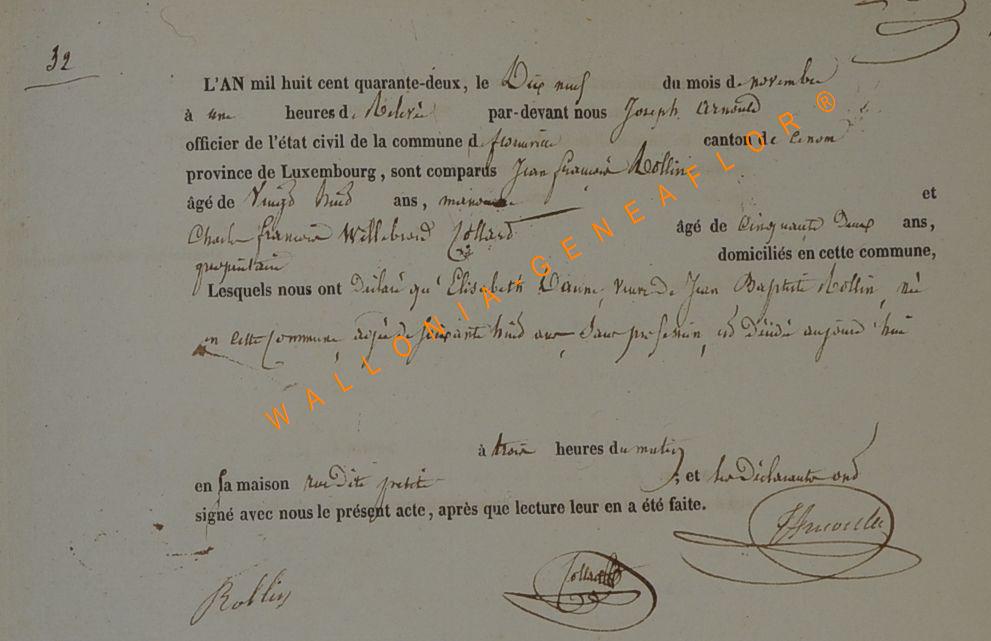 32
L'AN mil huit cent quarante-deux, le Dix neuf du mois de novembre
à une heures de Relevé par-devant nous Joseph Arnould
officier de l'état civil de la commune d canton de
province de Luxembourg, sont comparus Jean françois Rollin
âgé de Vingt huit ans, et
Charles françois Willebrord Collard âgé de Cinquante Deux ans,
propriétaire domiciliés en cette commune,
Lesquels nous ont Déclaré qu'Elisabeth veuve de Jean Baptiste Rollin, née
en cette Commune, agée de soixante huit ans, Sans profession, est Décédé aujourd'hui
à trois heures du matin
en sa maison rue Dite , et les Déclarants ont
signé avec nous le présent acte, après que lecture leur en a été faite.
Rollin Collard JArnould
WALLONIA-GENEAFLOR®